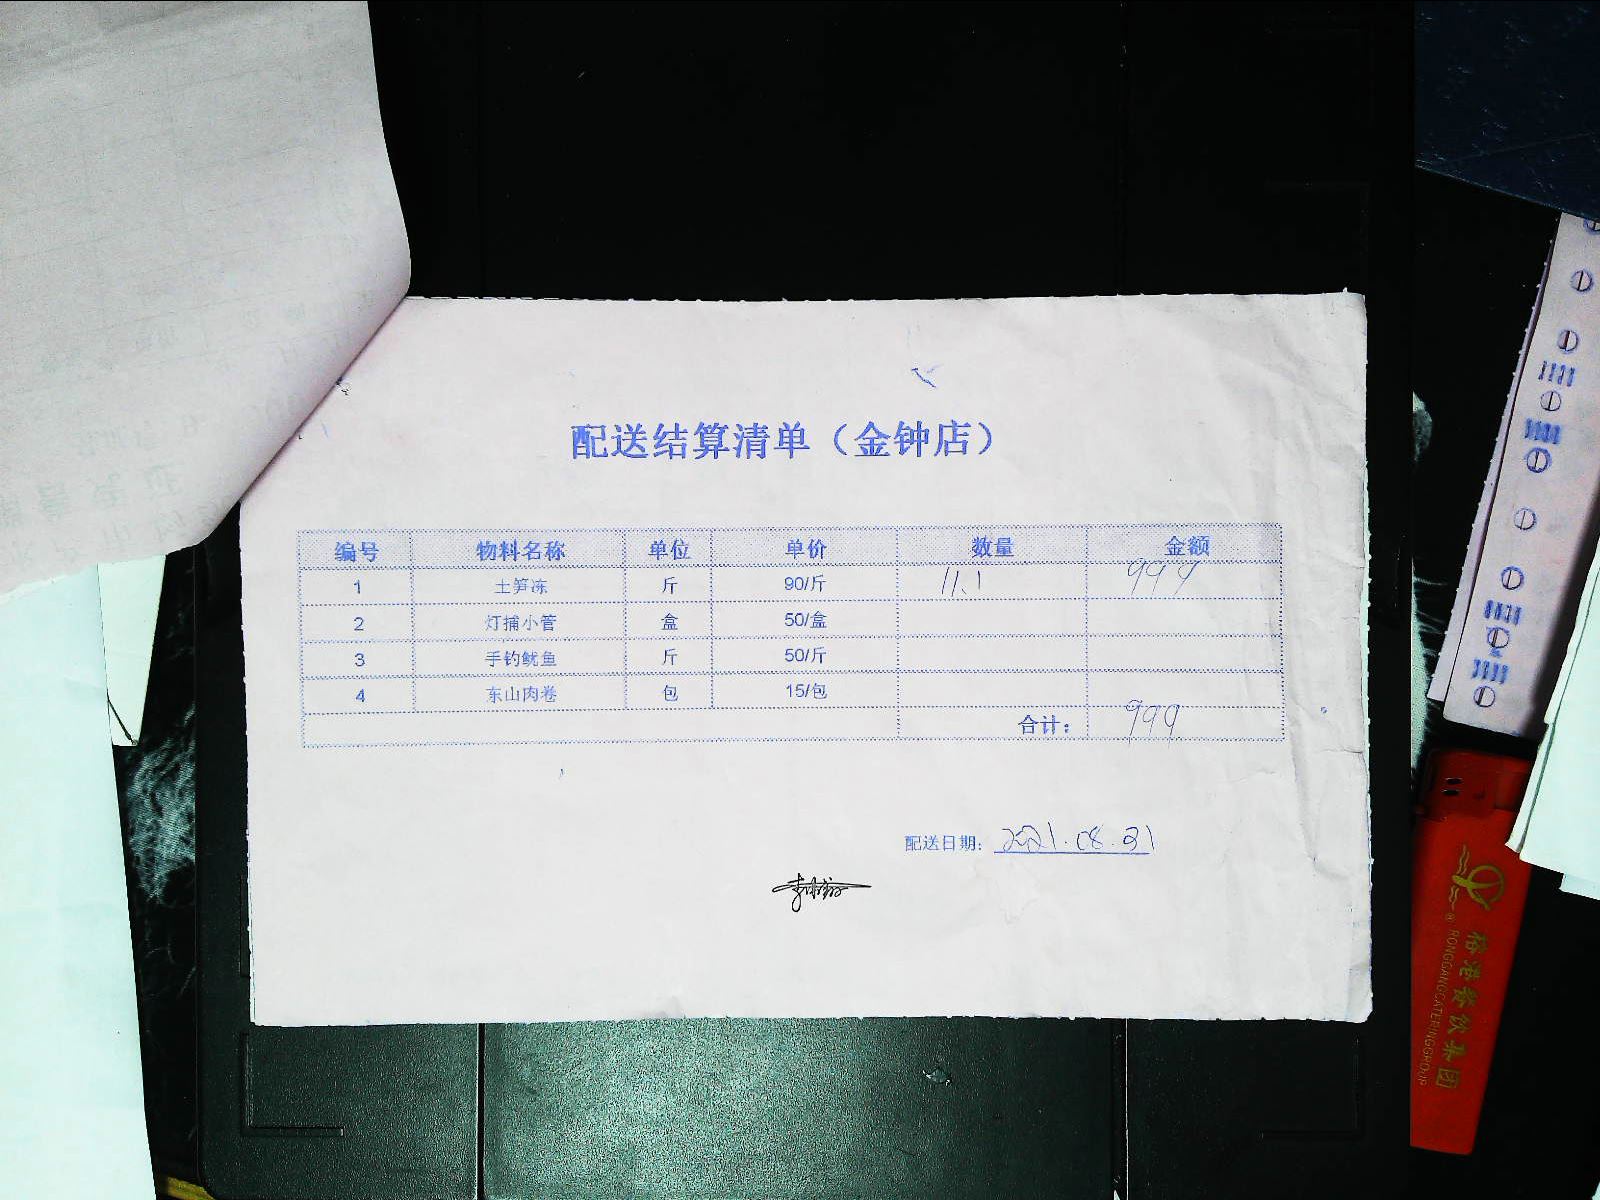 配送结算清单（金钟店）
编号 物料名称 单位 单价 数量 金额
1 土笋冻 斤 90/斤 11.1 999
2 灯捕小管 盒 50/盒
3 手钓鱿鱼 斤 50/斤
4 东山肉卷 包 15/包
合计： 999
配送日期： 2021.08.31
RONGGANGCATERINGGROUP
港餐饮集团